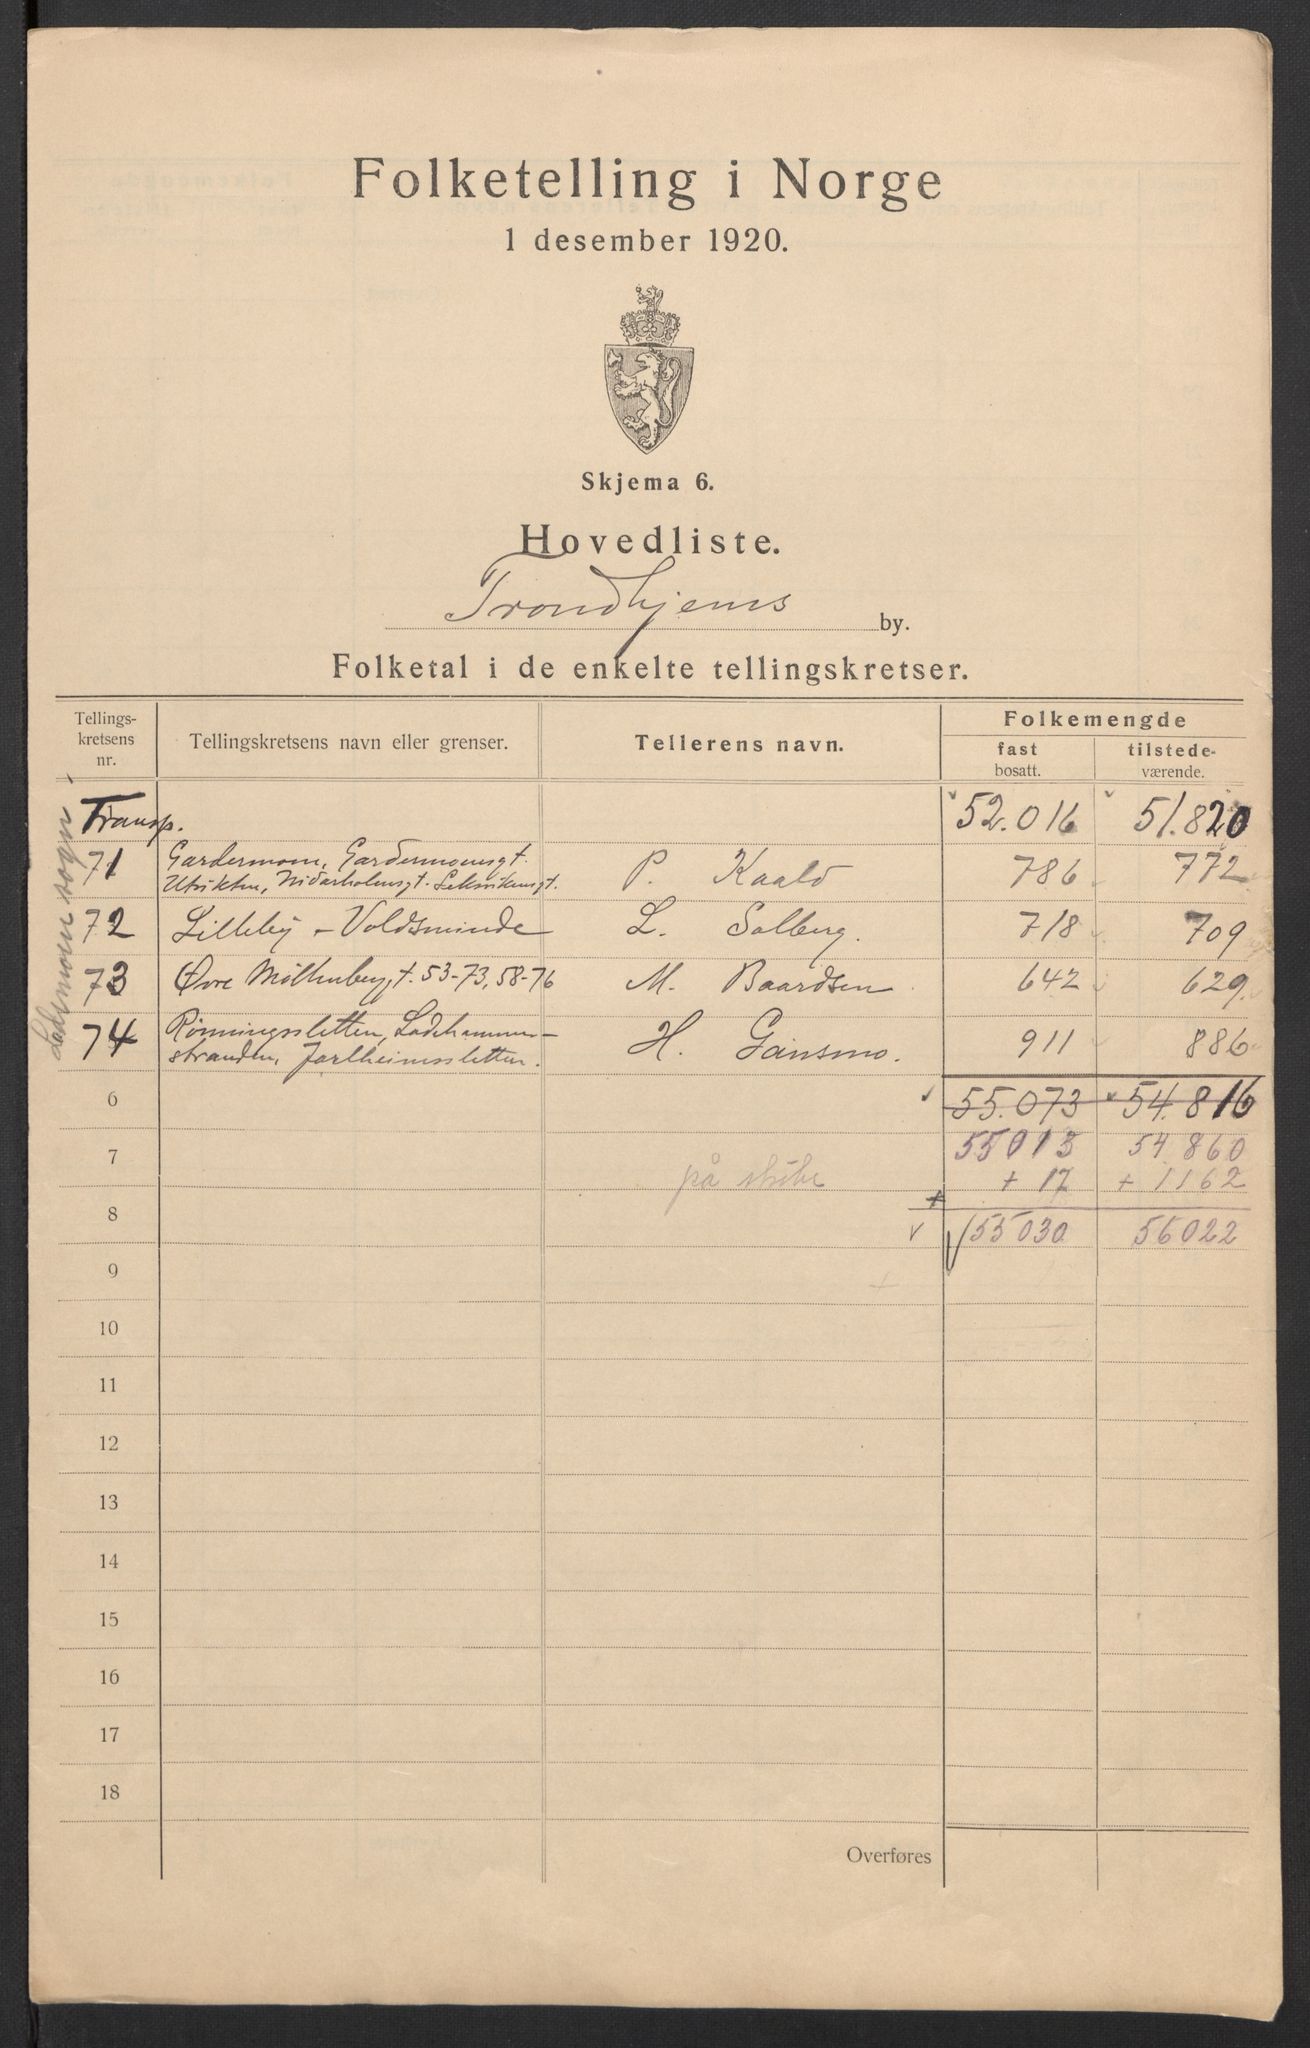 Folketelling i Norge
1 desember 1920.
Skjema 6.
Hovedliste.
Trondhjems by.
Folketal i de enkelte tellingskretser.
Tellings-
kretsens
nr.
Tellingskretsens navn eller grenser.
Tellerens navn.
Folkemengde
fast
bosatt.
tilstede-
værende.
Lademoen sogn
Transp. 52.016 51.820
71 Gardermoen, Gardermoensgt.
Utsikten, Nidarholmsgt. Leksvikensgt. P. Kaald 786 772
72 Lilleby - Voldsminde L. Solberg. 718 709
73 Øvre Møllenberggt. 53-73, 58-76 M. Baardsen 642 629
74 Rønningssletten, Ladehammer-
stranden, Jarlheimssletten. H. Gansmo. 911 886
6 55.073 54.816
55013 54.860
7
på skibe + 17 + 1162
8 55030 56022
9
10
11
12
13
14
15
16
17
18
Overføres